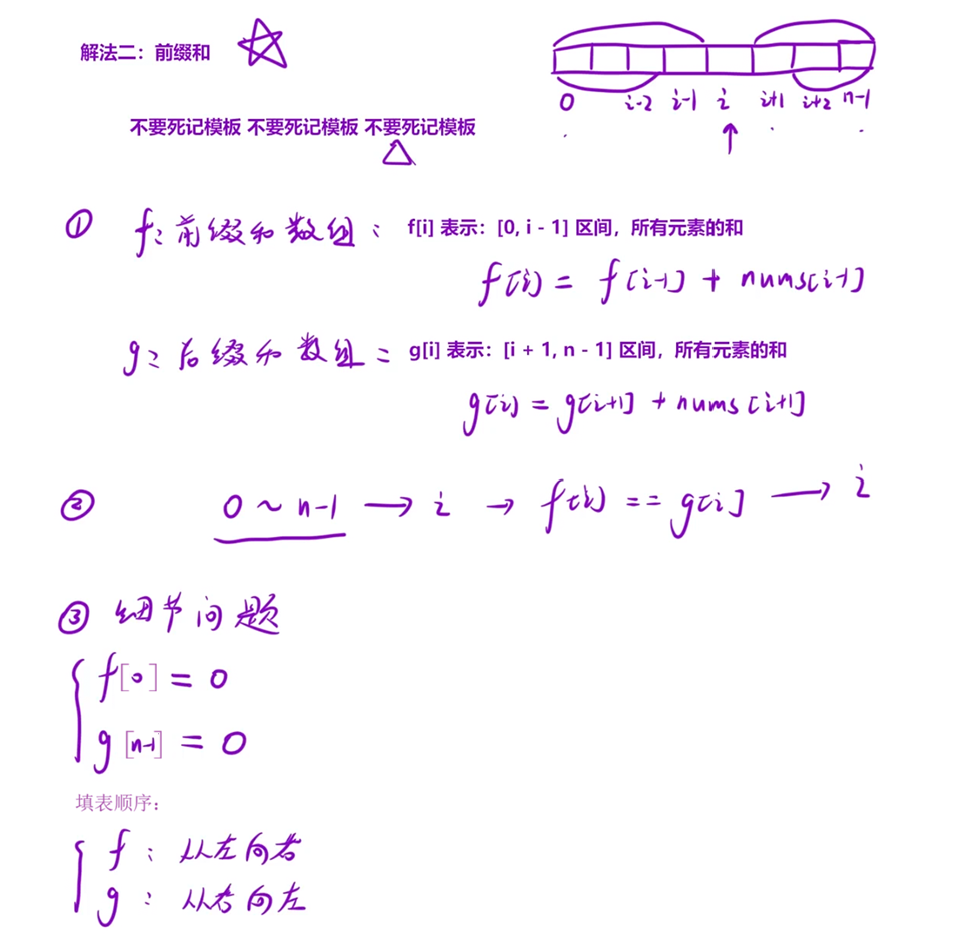 解法二：前缀和
0 i-2 i-1 i i+1 i+2 n-1
不要死记模板 不要死记模板 不要死记模板
① f：前缀和数组： f[i] 表示：[0, i - 1] 区间，所有元素的和
f[i] = f[i-1] + nums[i-1]
g：后缀和数组： g[i] 表示：[i + 1, n - 1] 区间，所有元素的和
g[i] = g[i+1] + nums[i+1]
② 0 ~ n-1 → i → f[i] == g[i] → i
③ 细节问题
f[0] = 0
g[n-1] = 0
填表顺序：
f：从左向右
g：从右向左